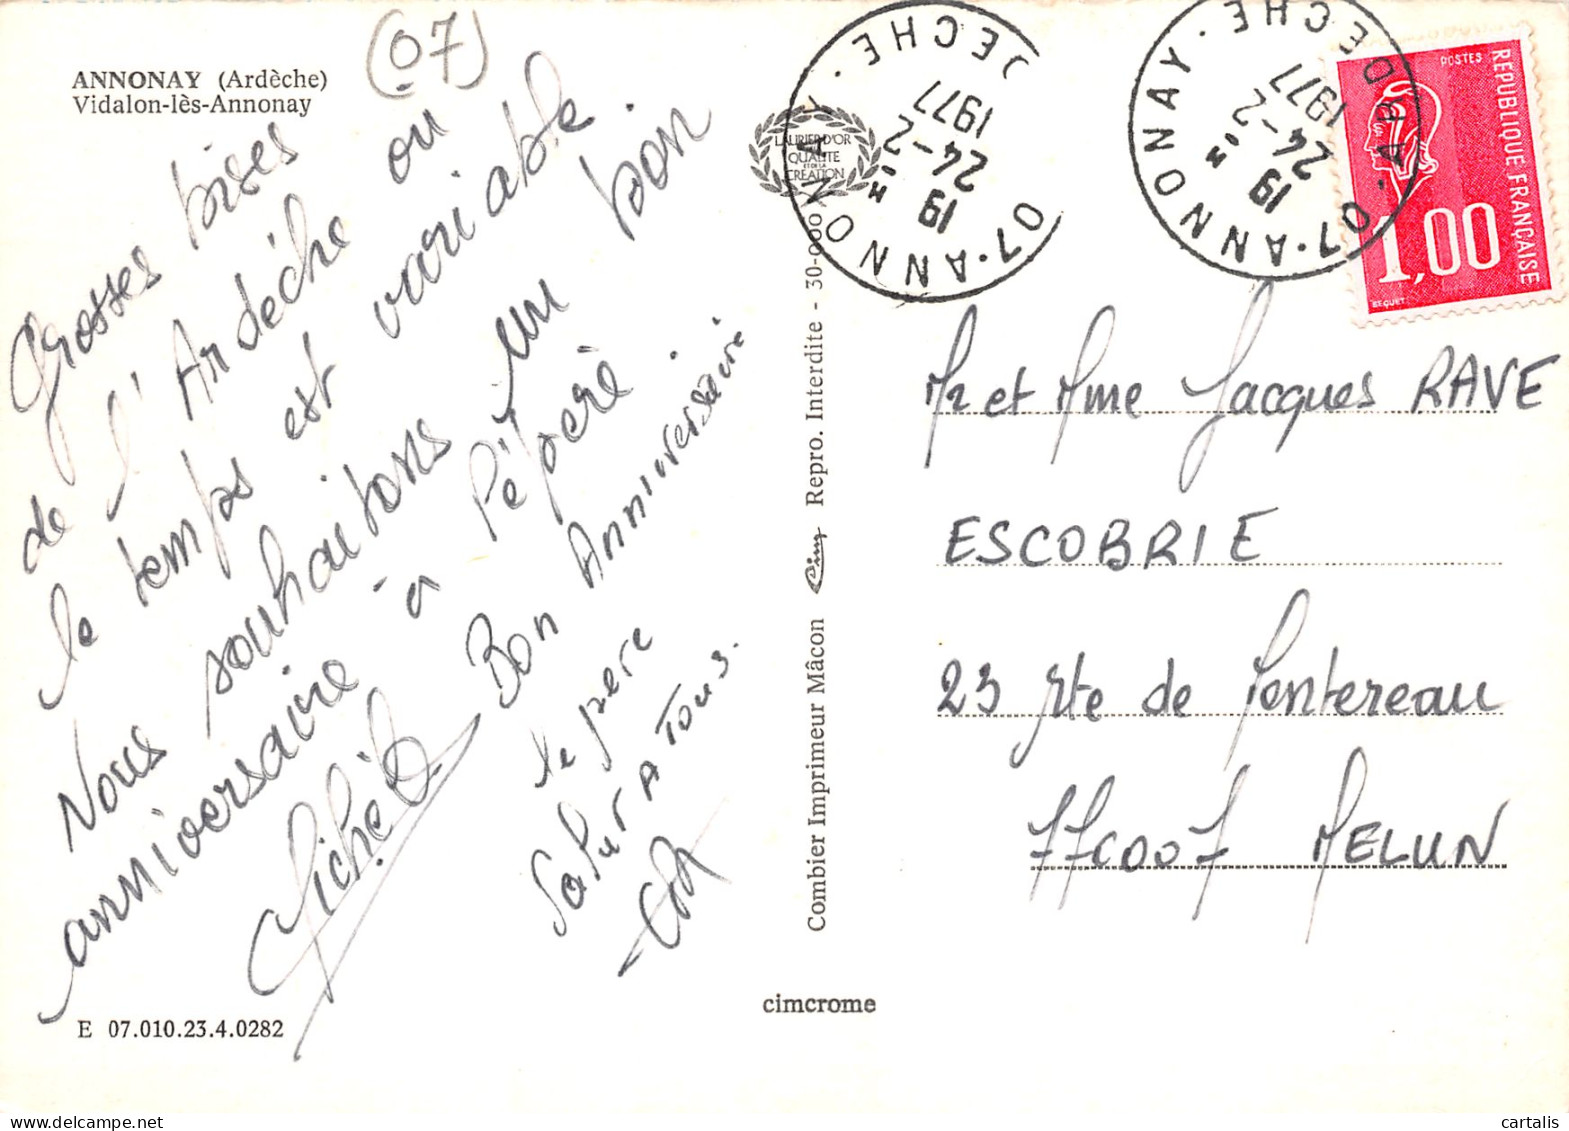 ANNONAY (Ardèche)
Vidalon-lès-Annonay
(07)
Grosses bises
de l'Ardèche ou
le temps est variable
Nous souhaitons un bon
anniversaire à Pépère.
Michel
Bon Anniversaire
le pere
Salut A Tous.
E 07.010.23.4.0282
LAURIER D'OR
QUALITÉ
ET DE LA
CRÉATION
Combier Imprimeur Mâcon Cim Repro. Interdite - 30-000
cimcrome
07·ANNONAY·ARDECHE
19
24-2
1977
07·ANNONAY·ARDECHE
19
24-2
1977
POSTES
REPUBLIQUE FRANÇAISE
1,00
BEQUET
Mr et Mme Jacques RAVE
ESCOBRIE
23 rte de Montereau
77007 MELUN
cartalis
cartalis.com